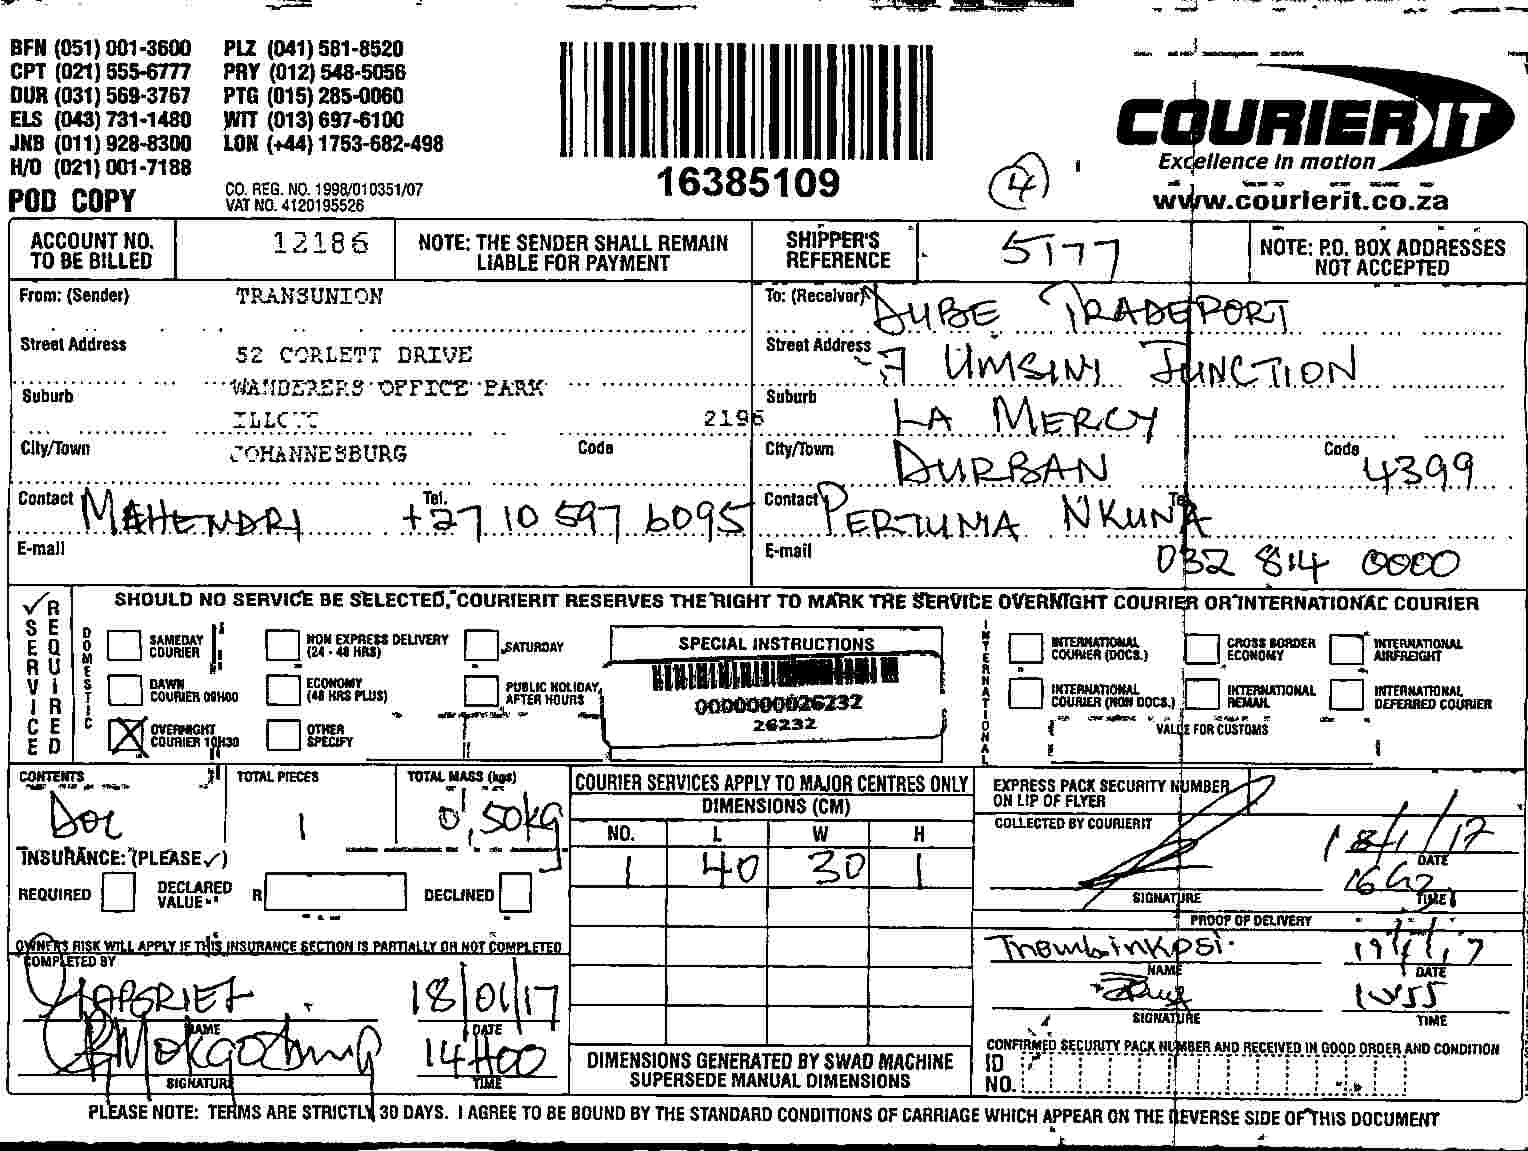 BFN (051) 001-3600 PLZ (041) 581-8520
CPT (021) 555-6777 PRY (012) 548-5056
DUR (031) 569-3767 PTG (015) 285-0060
ELS (043) 731-1480 WIT (013) 697-6100
JNB (011) 928-8300 LON (+44) 1753-682-498
H/O (021) 001-7188
POD COPY
CO. REG. NO. 1998/010351/07
VAT NO. 4120195526
16385109
4
COURIER IT
Excellence in motion
www.courierit.co.za
ACCOUNT NO. TO BE BILLED
12186
NOTE: THE SENDER SHALL REMAIN LIABLE FOR PAYMENT
SHIPPER'S REFERENCE
5177
NOTE: P.O. BOX ADDRESSES NOT ACCEPTED
From: (Sender) TRANSUNION
Street Address 52 CORLETT DRIVE
WANDERERS OFFICE PARK
Suburb 2196
City/Town JOHANNESBURG Code
Contact MAHENDRI Tel. +27 10 597 6095
E-mail
To: (Receiver) DUBE TRADEPORT
Street Address 7 UMSINI JUNCTION
Suburb LA MERCY
City/Town DURBAN Code 4399
Contact PERTUNIA NKUNA Tel
E-mail 032 814 0000
SERVICE REQUIRED
SHOULD NO SERVICE BE SELECTED, COURIERIT RESERVES THE RIGHT TO MARK THE SERVICE OVERNIGHT COURIER OR INTERNATIONAL COURIER
DOMESTIC
SAMEDAY COURIER
NON EXPRESS DELIVERY (24 - 48 HRS)
SATURDAY
DAWN COURIER 09H00
ECONOMY (48 HRS PLUS)
PUBLIC HOLIDAY, AFTER HOURS
OVERNIGHT COURIER 10H30
OTHER SPECIFY
SPECIAL INSTRUCTIONS
00000000026232
26232
INTERNATIONAL
INTERNATIONAL COURIER (DOCS.)
CROSS BORDER ECONOMY
INTERNATIONAL AIRFREIGHT
INTERNATIONAL COURIER (NON DOCS.)
INTERNATIONAL REMAIL
INTERNATIONAL DEFERRED COURIER
VALUE FOR CUSTOMS
CONTENTS Doc
TOTAL PIECES 1
TOTAL MASS (kgs) 0,50kg
INSURANCE: (PLEASE ✓)
REQUIRED DECLARED VALUE R DECLINED
OWNERS RISK WILL APPLY IF THIS INSURANCE SECTION IS PARTIALLY OR NOT COMPLETED
COMPLETED BY
NAME 18/01/17 DATE
SIGNATURE 14H00 TIME
COURIER SERVICES APPLY TO MAJOR CENTRES ONLY
DIMENSIONS (CM)
NO. L W H
1 40 30 1
DIMENSIONS GENERATED BY SWAD MACHINE SUPERSEDE MANUAL DIMENSIONS
EXPRESS PACK SECURITY NUMBER ON LIP OF FLYER
COLLECTED BY COURIERIT
18/1/17 DATE
SIGNATURE TIME
PROOF OF DELIVERY
NAME 19/1/17 DATE
SIGNATURE TIME
CONFIRMED SECURITY PACK NUMBER AND RECEIVED IN GOOD ORDER AND CONDITION
ID NO.
PLEASE NOTE: TERMS ARE STRICTLY 30 DAYS. I AGREE TO BE BOUND BY THE STANDARD CONDITIONS OF CARRIAGE WHICH APPEAR ON THE REVERSE SIDE OF THIS DOCUMENT